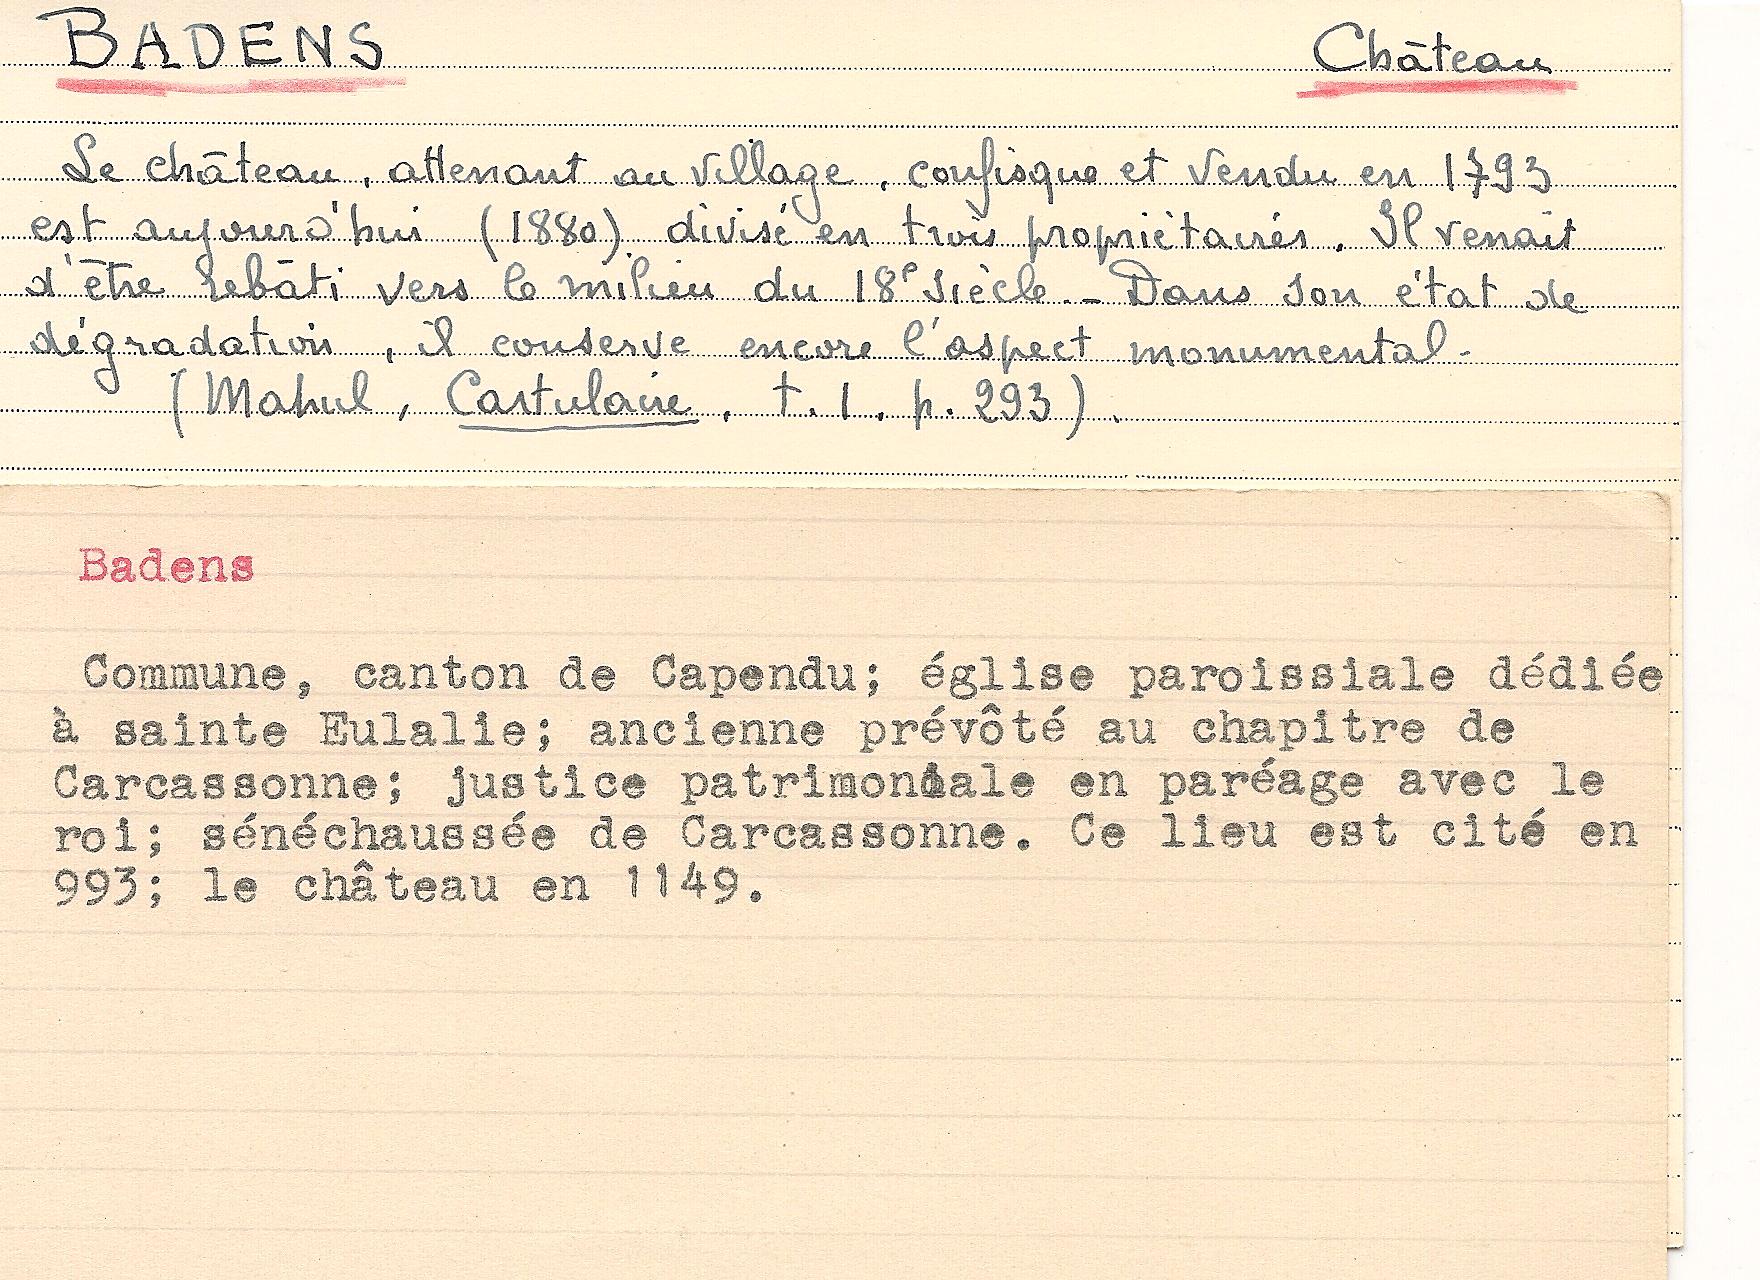 BADENS Château
Le château, attenant au village, confisqué et vendu en 1793
est aujourd'hui (1880) divisé en trois propriétaires. Il venait
d'être rebâti vers le milieu du 18e siècle. - Dans son état de
dégradation, il conserve encore l'aspect monumental -
(Mahul, Cartulaire, t. 1, p. 293).
Badens
Commune, canton de Capendu; église paroissiale dédiée
à sainte Eulalie; ancienne prévôté au chapitre de
Carcassonne; justice patrimoniale en paréage avec le
roi; sénéchaussée de Carcassonne. Ce lieu est cité en
993; le château en 1149.